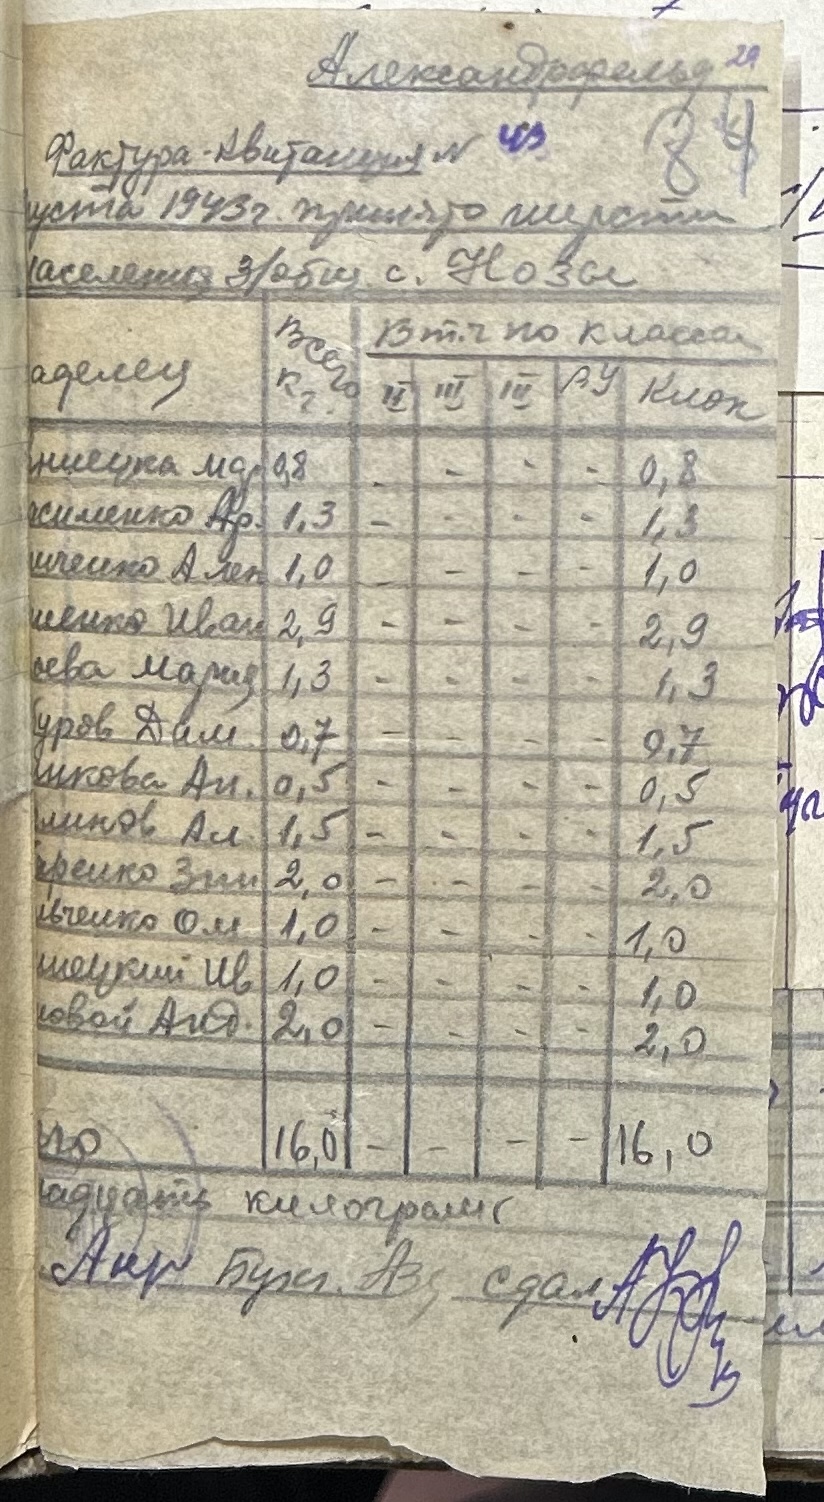 Александрофельд 29
Фактура-Квитанция N 43 84
уста 1943г. принято шерсти
населения З/общ с. Нозы
аделец Всего кг. В т.ч по класса
II III III РУ Клок
ницка 0,8 - - - - 0,8
сименко Ар. 1,3 - - - - 1,3
иченко Алек 1,0 - - - - 1,0
шенко Иван 2,9 - - - - 2,9
ева Мария 1,3 - - - - 1,3
уров Дам. 0,7 - - - - 0,7
никова Ан. 0,5 - - - - 0,5
ликов Ал. 1,5 - - - - 1,5
аренко Зин 2,0 - - - - 2,0
ьченко Ом 1,0 - - - - 1,0
ецкий Ив 1,0 - - - - 1,0
новой Анд. 2,0 - - - - 2,0
го 16,0 - - - - 16,0
надцать килограмм
Бухг. сдал